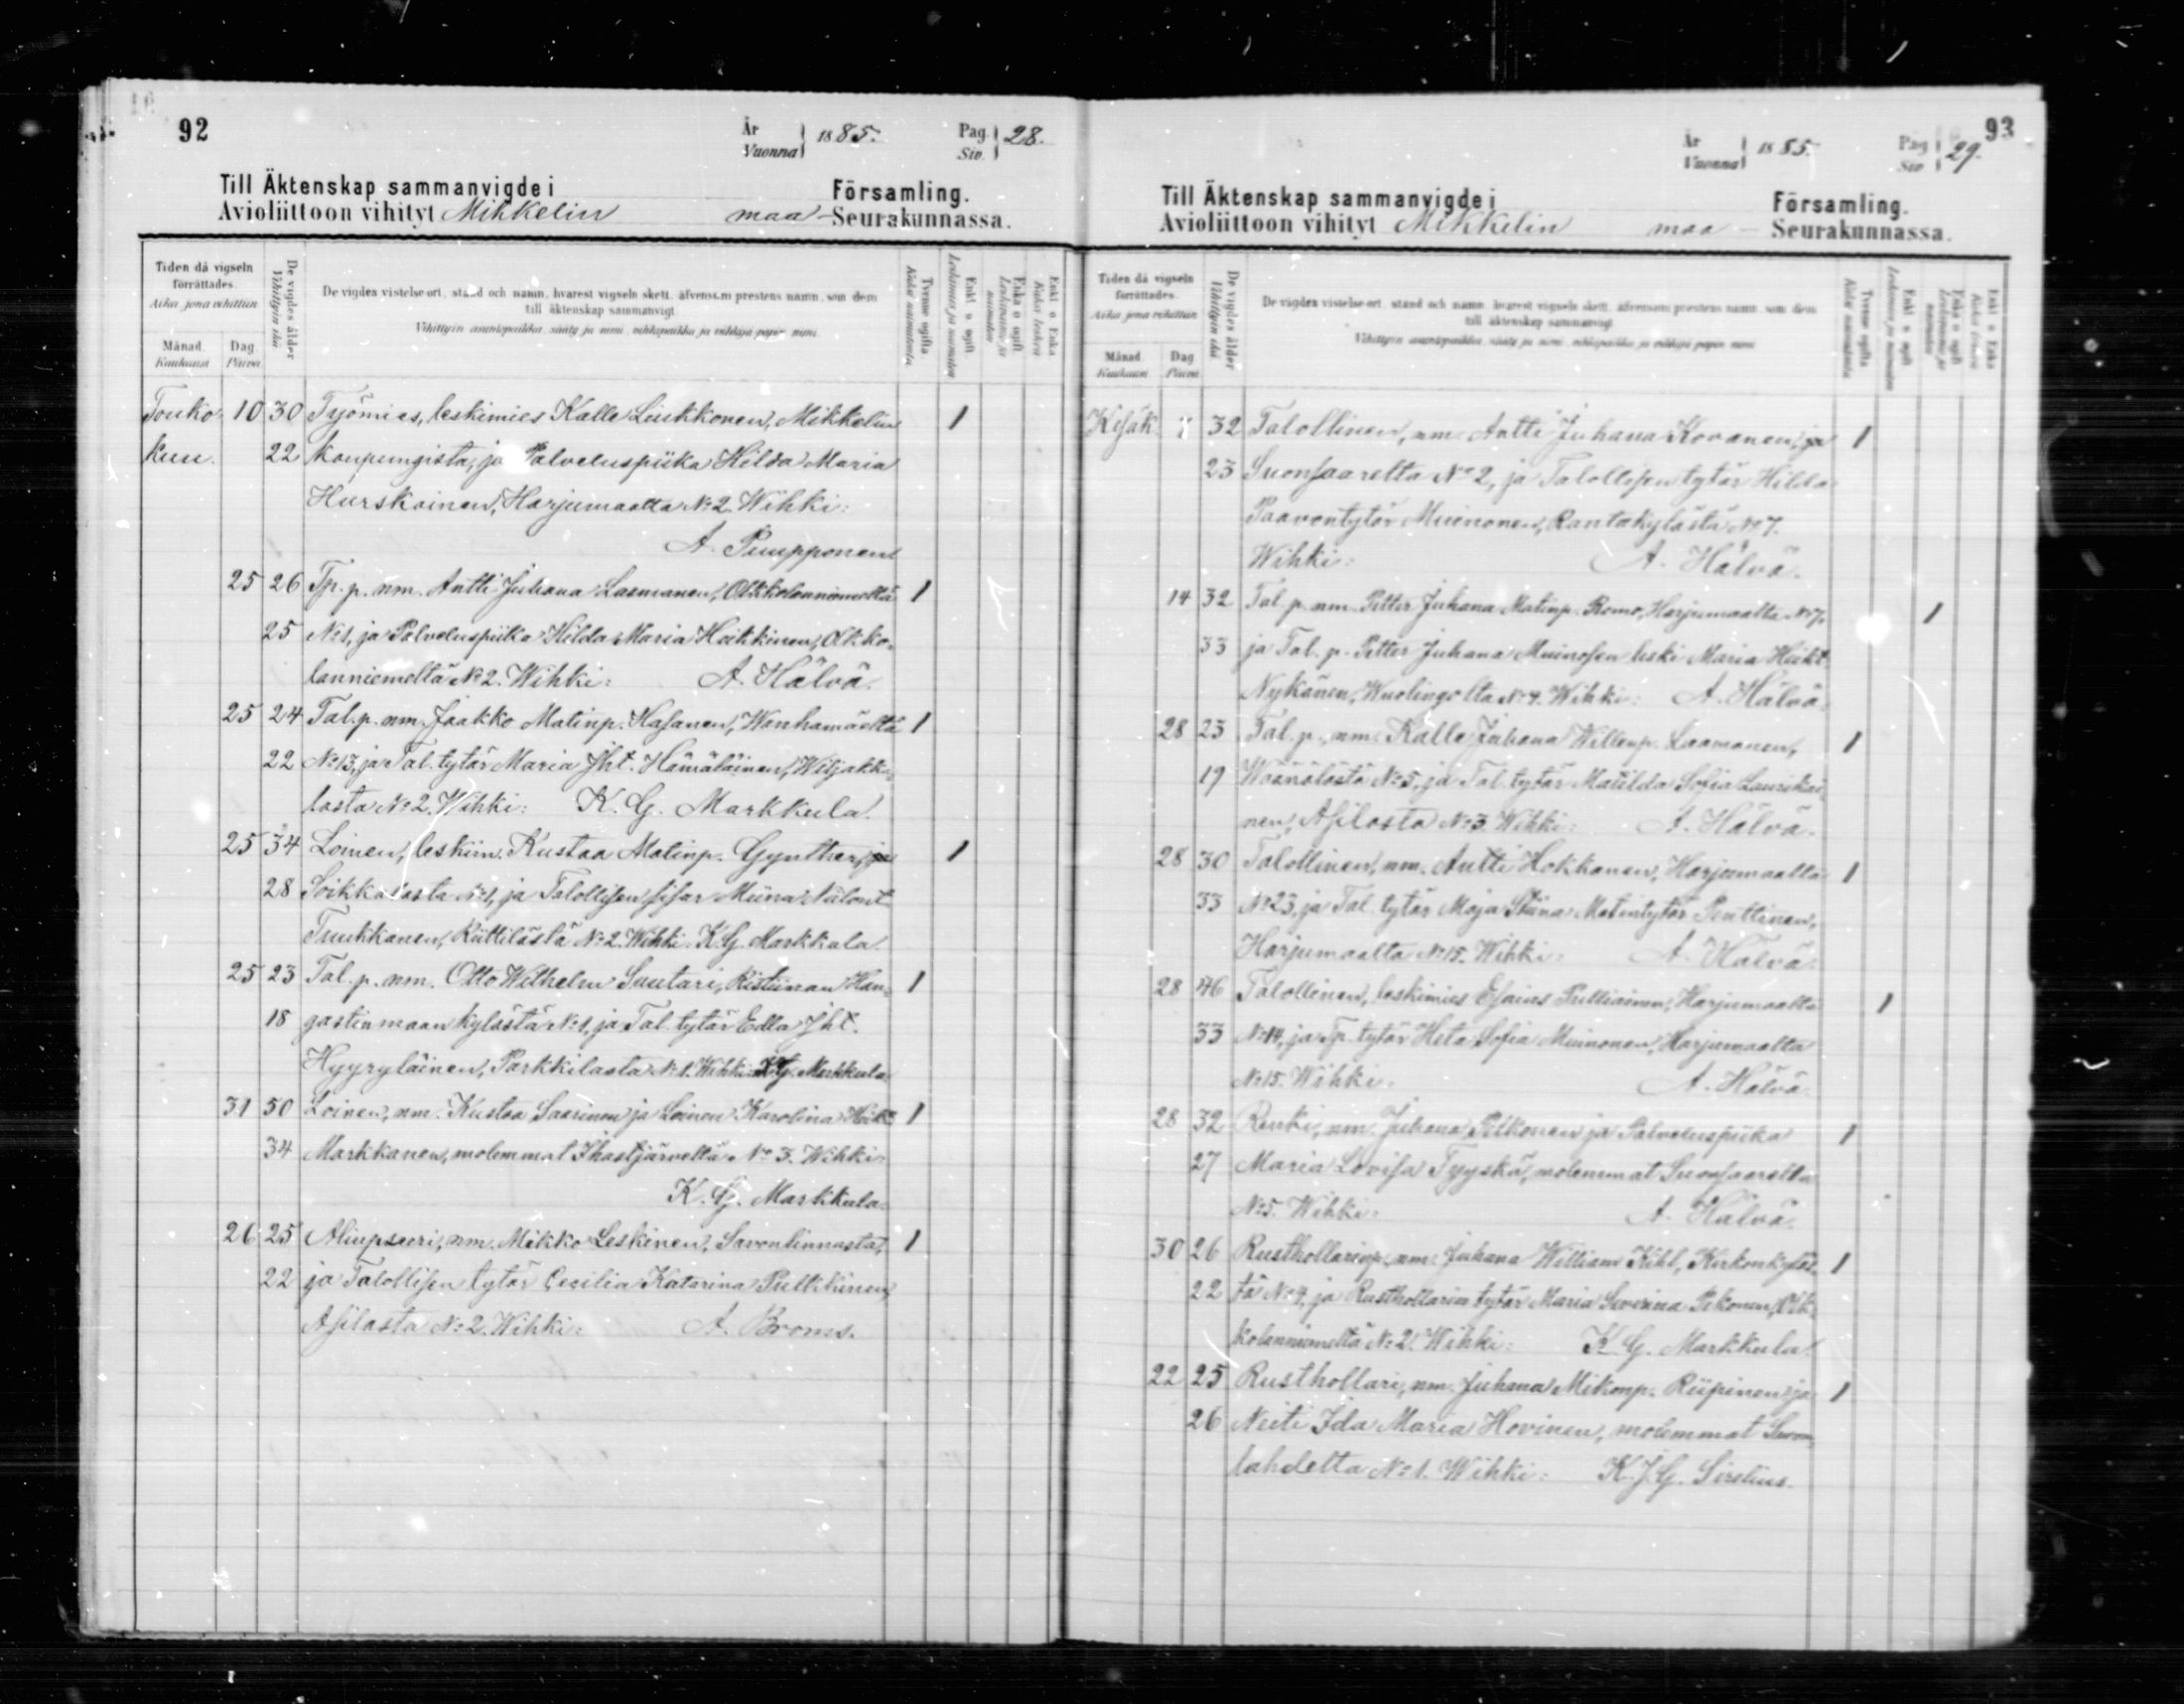 92
År Vuonna 1885.
Pag. Siv. 28.
Till Äktenskap sammanvigde i Församling.
Avioliittoon vihityt Mikkelin maa- Seurakunnassa.
Tiden då vigseln förrättades.
Aika jona vihittiin
Månad. Kuukausi
Dag. Päivä
De vigdes ålder
Vihittyin ikä
De vigdes vistelse-ort, stånd och namn, hvarest vigseln skett, äfvensom prestens namn, som dem
till äktenskap sammanvigt.
Vihittyin asuntopaikka, sääty ja nimi, vihkipaikka ja vihkijä papin nimi.
Touko 10 30 Työmies, leskimies Kalle Liukkonen, Mikkelin 1
kuu. 22 kaupungista, ja Palveluspiika Hilda Maria
Hurskainen, Harjumaalta No 2. Wihki:
A. Puupponen
25 26 Tp. p. nm. Antti Juhana Laamanen, Olkkolanniemeltä 1
25 No 1, ja Palveluspiika Hilda Maria Heikkinen, Olkko-
lanniemeltä No 2. Wihki: A. Hälvä.
25 24 Tal. p. nm. Jaakko Matinp. Hasanen, Wanhamäeltä 1
22 No 13, ja Tal. tytär Maria Jht. Hämäläinen, Witjakka-
lasta No 2. Wihki: K. G. Markkula.
25 34 Loinen, leskim. Kustaa Matinp. Gynther, ja 1
28 Soikkalasta No 1, ja Talollisen sisar Miina Niilont.
Truukkanen, Riittilästä No 2. Wihki: K. G. Markkula.
25 23 Tal. p. nm. Otto Wilhelm Suutari, Ristiinan Han- 1
18 gastenmaan kylästä No 1, ja Tal. tytär Edla Jht.
Hyyryläinen, Parkkilasta No 1. Wihki: K. G. Markkula
31 50 Loinen, nm. Kustaa Saarinen ja Loinen Karolina Heikt. 1
34 Markkanen, molemmat Ihastjärveltä No 3. Wihki:
K. G. Markkula.
26 25 Aliupseeri, nm. Mikko Leskinen, Savonlinnasta, 1
22 ja Talollisen tytär Cecilia Katarina Pulkkinen,
Asilasta No 2. Wihki: A. Broms.
93
År Vuonna 1885.
Pag. Siv. 29.
Till Äktenskap sammanvigde i Församling.
Avioliittoon vihityt Mikkelin maa- Seurakunnassa.
Tiden då vigseln förrättades.
Aika jona vihittiin
Månad. Kuukausi
Dag. Päivä
De vigdes ålder
Vihittyin ikä
De vigdes vistelse-ort, stånd och namn, hvarest vigseln skett, äfvensom prestens namn, som dem
till äktenskap sammanvigt.
Vihittyin asuntopaikka, sääty ja nimi, vihkipaikka ja vihkijä papin nimi.
Kesäk. 32 Talollinen, nm. Antti Juhana Kovanen, ja 1
23 Suonsaarelta No 2, ja Talollisen tytär Hilda
Paavontytär Muinonen, Rantakylästä No 7.
Wihki: A. Hälvä.
14 32 Tal. p. nm. Petter Juhana Matinp. Romo, Harjumaalta No 7, 1
33 ja Tal. p. Petter Juhana Muinosen leski Maria Heikt.
Nykänen, Wuolingolta No 4. Wihki: A. Hälvä.
28 23 Tal. p., nm. Kalle Juhana Willenp. Laamanen, 1
19 Wäänälästä No 5, ja Tal. tytär Matilda Sofia Laurikai-
nen, Asilasta No 3. Wihki: A. Hälvä.
28 30 Talollinen, nm. Antti Hokkanen, Harjumaalta 1
33 No 23, ja Tal. tytär Maja Stiina Matintytär Penttinen,
Harjumaalta No 15. Wihki: A. Hälvä.
28 46 Talollinen, leskimies Esaias Pulliainen, Harjumaalta 1
33 No 14, ja Tp. tytär Heta Sofia Muinonen, Harjumaalta
No 15. Wihki: A. Hälvä.
28 32 Renki, nm. Juhana Pelkonen ja Palveluspiika 1
27 Maria Lovisa Tyyskä, molemmat Suonsaarelta
No 5. Wihki: A. Hälvä.
30 26 Rusthollarinp., nm. Juhana William Kihl, Kirkonkyläs- 1
22 tä No 4, ja Rusthollarin tytär Maria Severina Pekonen, Olk-
kolanniemeltä No 2. Wihki: K. G. Markkula.
22 25 Rusthollari, nm. Juhana Mikonp. Riipinen ja 1
26 Neiti Ida Maria Hovinen, molemmat Suon-
lahdelta No 1. Wihki: K. J. G. Sirelius.